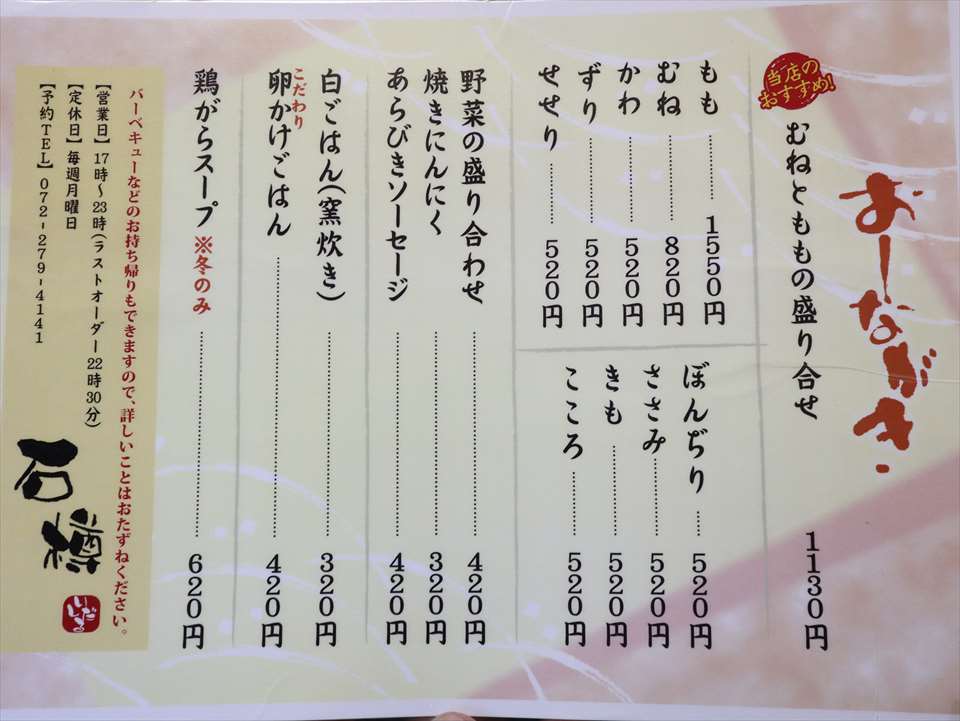 おーながき
当店の
おすすめ!
むねとももの盛り合せ 1130円
もも 1550円
むね 820円
かわ 520円
ずり 520円
せせり 520円
ぼんぢり 520円
ささみ 520円
きも 520円
こころ 520円
野菜の盛り合わせ 420円
焼きにんにく 320円
あらびきソーセージ 420円
白ごはん(窯炊き) 320円
こだわり
卵かけごはん 420円
鶏がらスープ ※冬のみ 620円
バーベキューなどのお持ち帰りもできますので、詳しいことはおたずねください。
【営業日】17時〜23時(ラストオーダー22時30分)
【定休日】毎週月曜日
【予約TEL】072-279-4141
石樽
いしだる